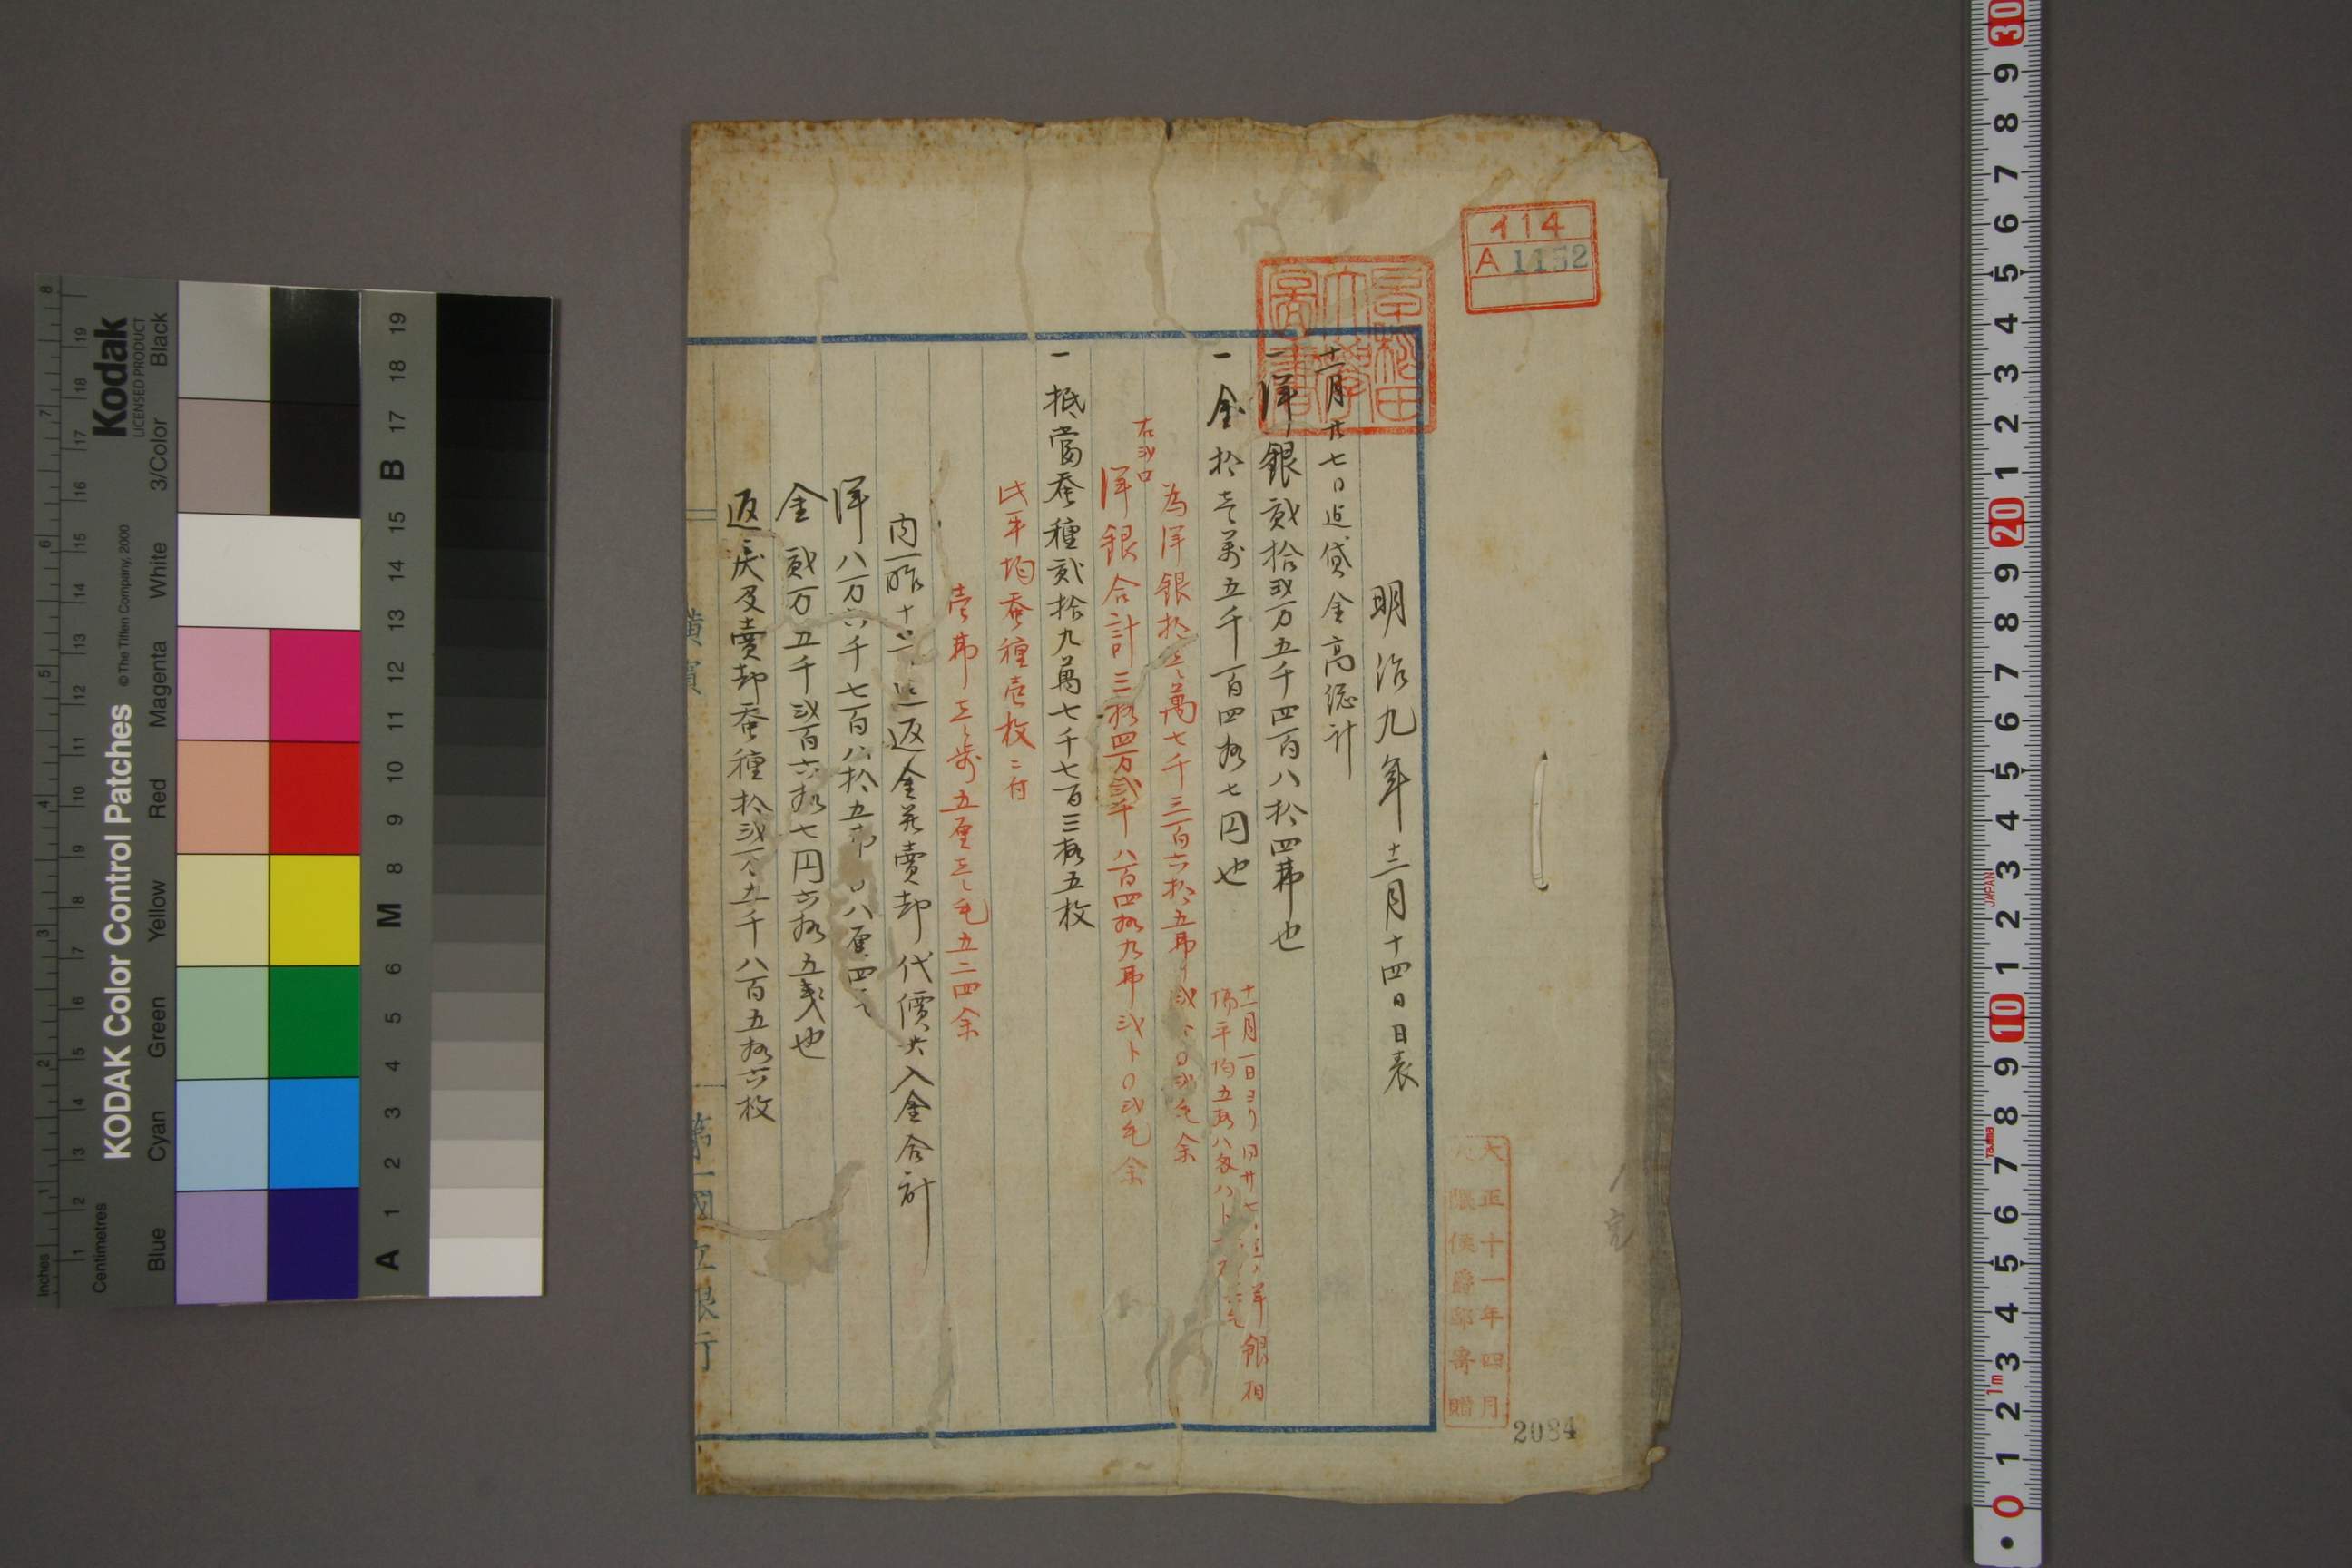 明治九年十二月十四日日表
十一月廿七日迄貸金高総計
一洋銀弐拾弐万五千四百八拾四弗也
一金拾壱萬五千百四拾七円也
十一月一日ヨリ同廿七日迄ノ洋銀相
場平均五拾八匁八ト
為洋銀拾壱萬七千三百六拾五弗弐ト〇弐毛余
右弐口
洋銀合計三拾四万弐千八百四拾九弗弐ト〇弐毛余
一抵當蚕種弐拾九萬七千七百三拾五枚
此平均蚕種壱枚ニ付
壱弗壱歩五厘壱毛五二四余
内昨十三日迄返金並賣却代價共入金合計
洋八万六千七百八拾五弗〇八厘四毛
金弐万五千弐百六拾七円六拾五銭也
返戻及賣却蚕種拾弐万五千八百五拾六枚
横濱
第一國立銀行
イ14
A 1152
早稲田大學圖書
大正十一年四月
大隈侯爵邸寄贈
2084
Kodak
LICENSED PRODUCT
KODAK Color Control Patches
© The Tiffen Company, 2000
Inches
Centimetres
Blue
Cyan
Green
Yellow
Red
Magenta
White
3/Color
Black
A 1 2 3 4 5 6 M 8 9 10 11 12 13 14 15 B 17 18 19
JAPAN
Tajima
1m